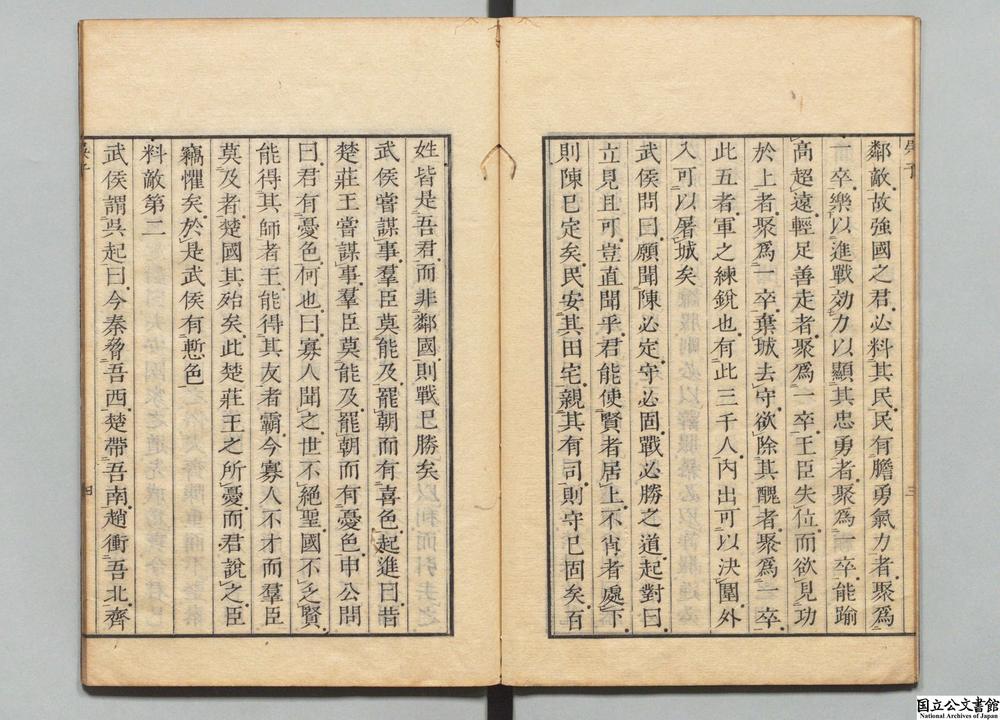 鄰敵故強國之君必料其民民有膽勇氣力者聚爲
一卒樂以進戰効力以顯其忠勇者聚爲一卒能踰
高超遠輕足善走者聚爲一卒王臣失位而欲見功
於上者聚爲一卒棄城去守欲除其醜者聚爲一卒
此五者軍之練銳也有此三千人內出可以決圍外
入可以屠城矣
武侯問曰願聞陳必定守必固戰必勝之道起對曰
立見且可豈直聞乎君能使賢者居上不肖者處下
則陳已定矣民安其田宅親其有司則守已固矣百
姓皆是吾君而非鄰國則戰已勝矣
武侯嘗謀事羣臣莫能及罷朝而有喜色起進曰昔
楚莊王嘗謀事羣臣莫能及罷朝而有憂色申公問
曰君有憂色何也曰寡人聞之世不絕聖國不乏賢
能得其師者王能得其友者霸今寡人不才而羣臣
莫及者楚國其殆矣此楚莊王之所憂而君說之臣
竊懼矣於是武侯有慙色
料敵第二
武侯謂吳起曰今秦脅吾西楚帶吾南趙衝吾北齊
国立公文書館
National Archives of Japan